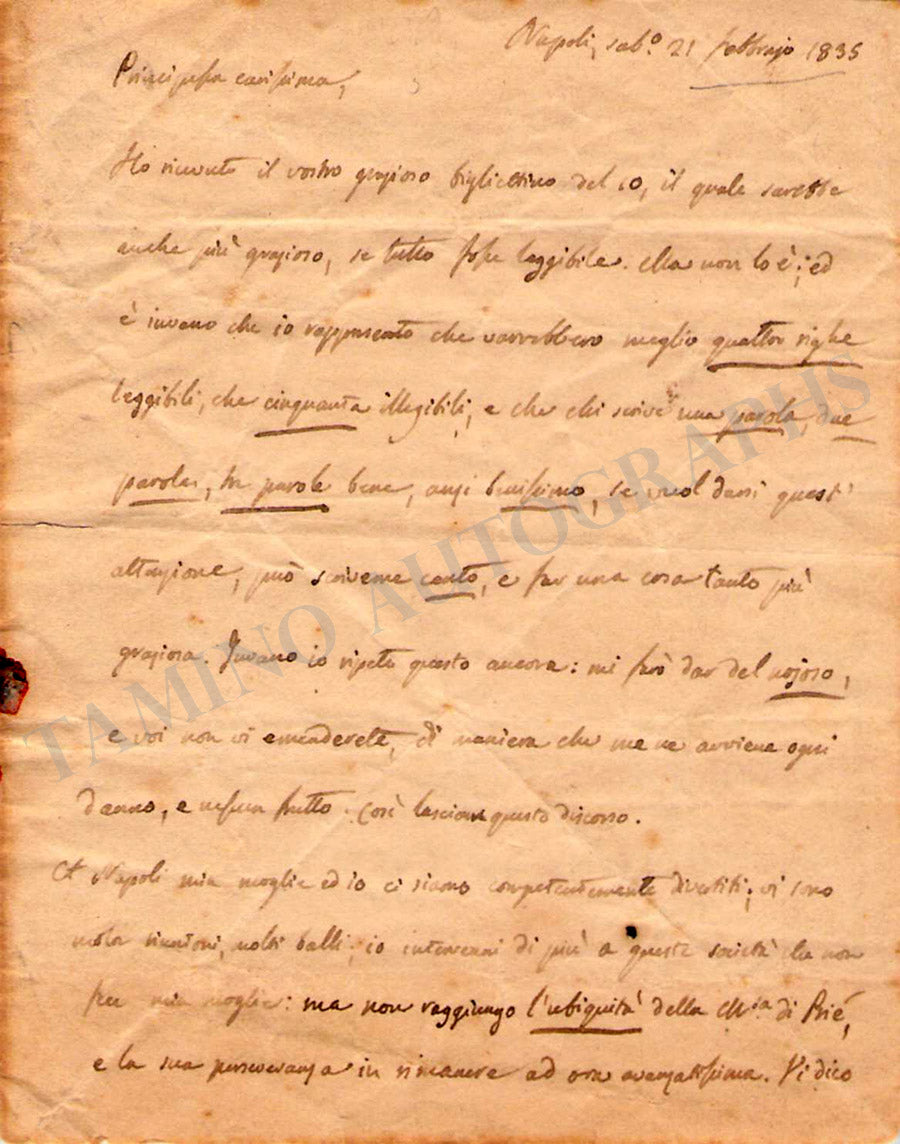 Napoli, sab.o 21 febbrajo 1835
Principessa carissima,
Ho ricevuto il vostro grazioso bigliettino del 10, il quale sarebbe
anche più grazioso, se tutto fosse leggibile. Ma non lo è; ed
è invano che io rappresento che varrebbero meglio quattro righe
leggibili, che cinquanta illegibili, e che chi scrive una parola, due
parole, tre parole bene, anzi benissimo, se vuol darsi quest'
attenzione, può scriverne cento, e far una cosa tanto più
graziosa. Invano io ripeto questo ancora: mi farò dar del nojoso,
e voi non vi emenderete, di maniera che me ne avviene ogni
danno, e nessun frutto. Così lasciam questo discorso.
A Napoli mia moglie ed io ci siamo competentemente divertiti; vi sono
molte riunioni, molti balli; io intervenni di più a queste società che non
fece mia moglie: ma non raggiungo l'ubiquità della M.sa di Prié,
e la sua perseveranza in rimanere ad ora avanzatissima. Vi dico
TAMINO AUTOGRAPHS